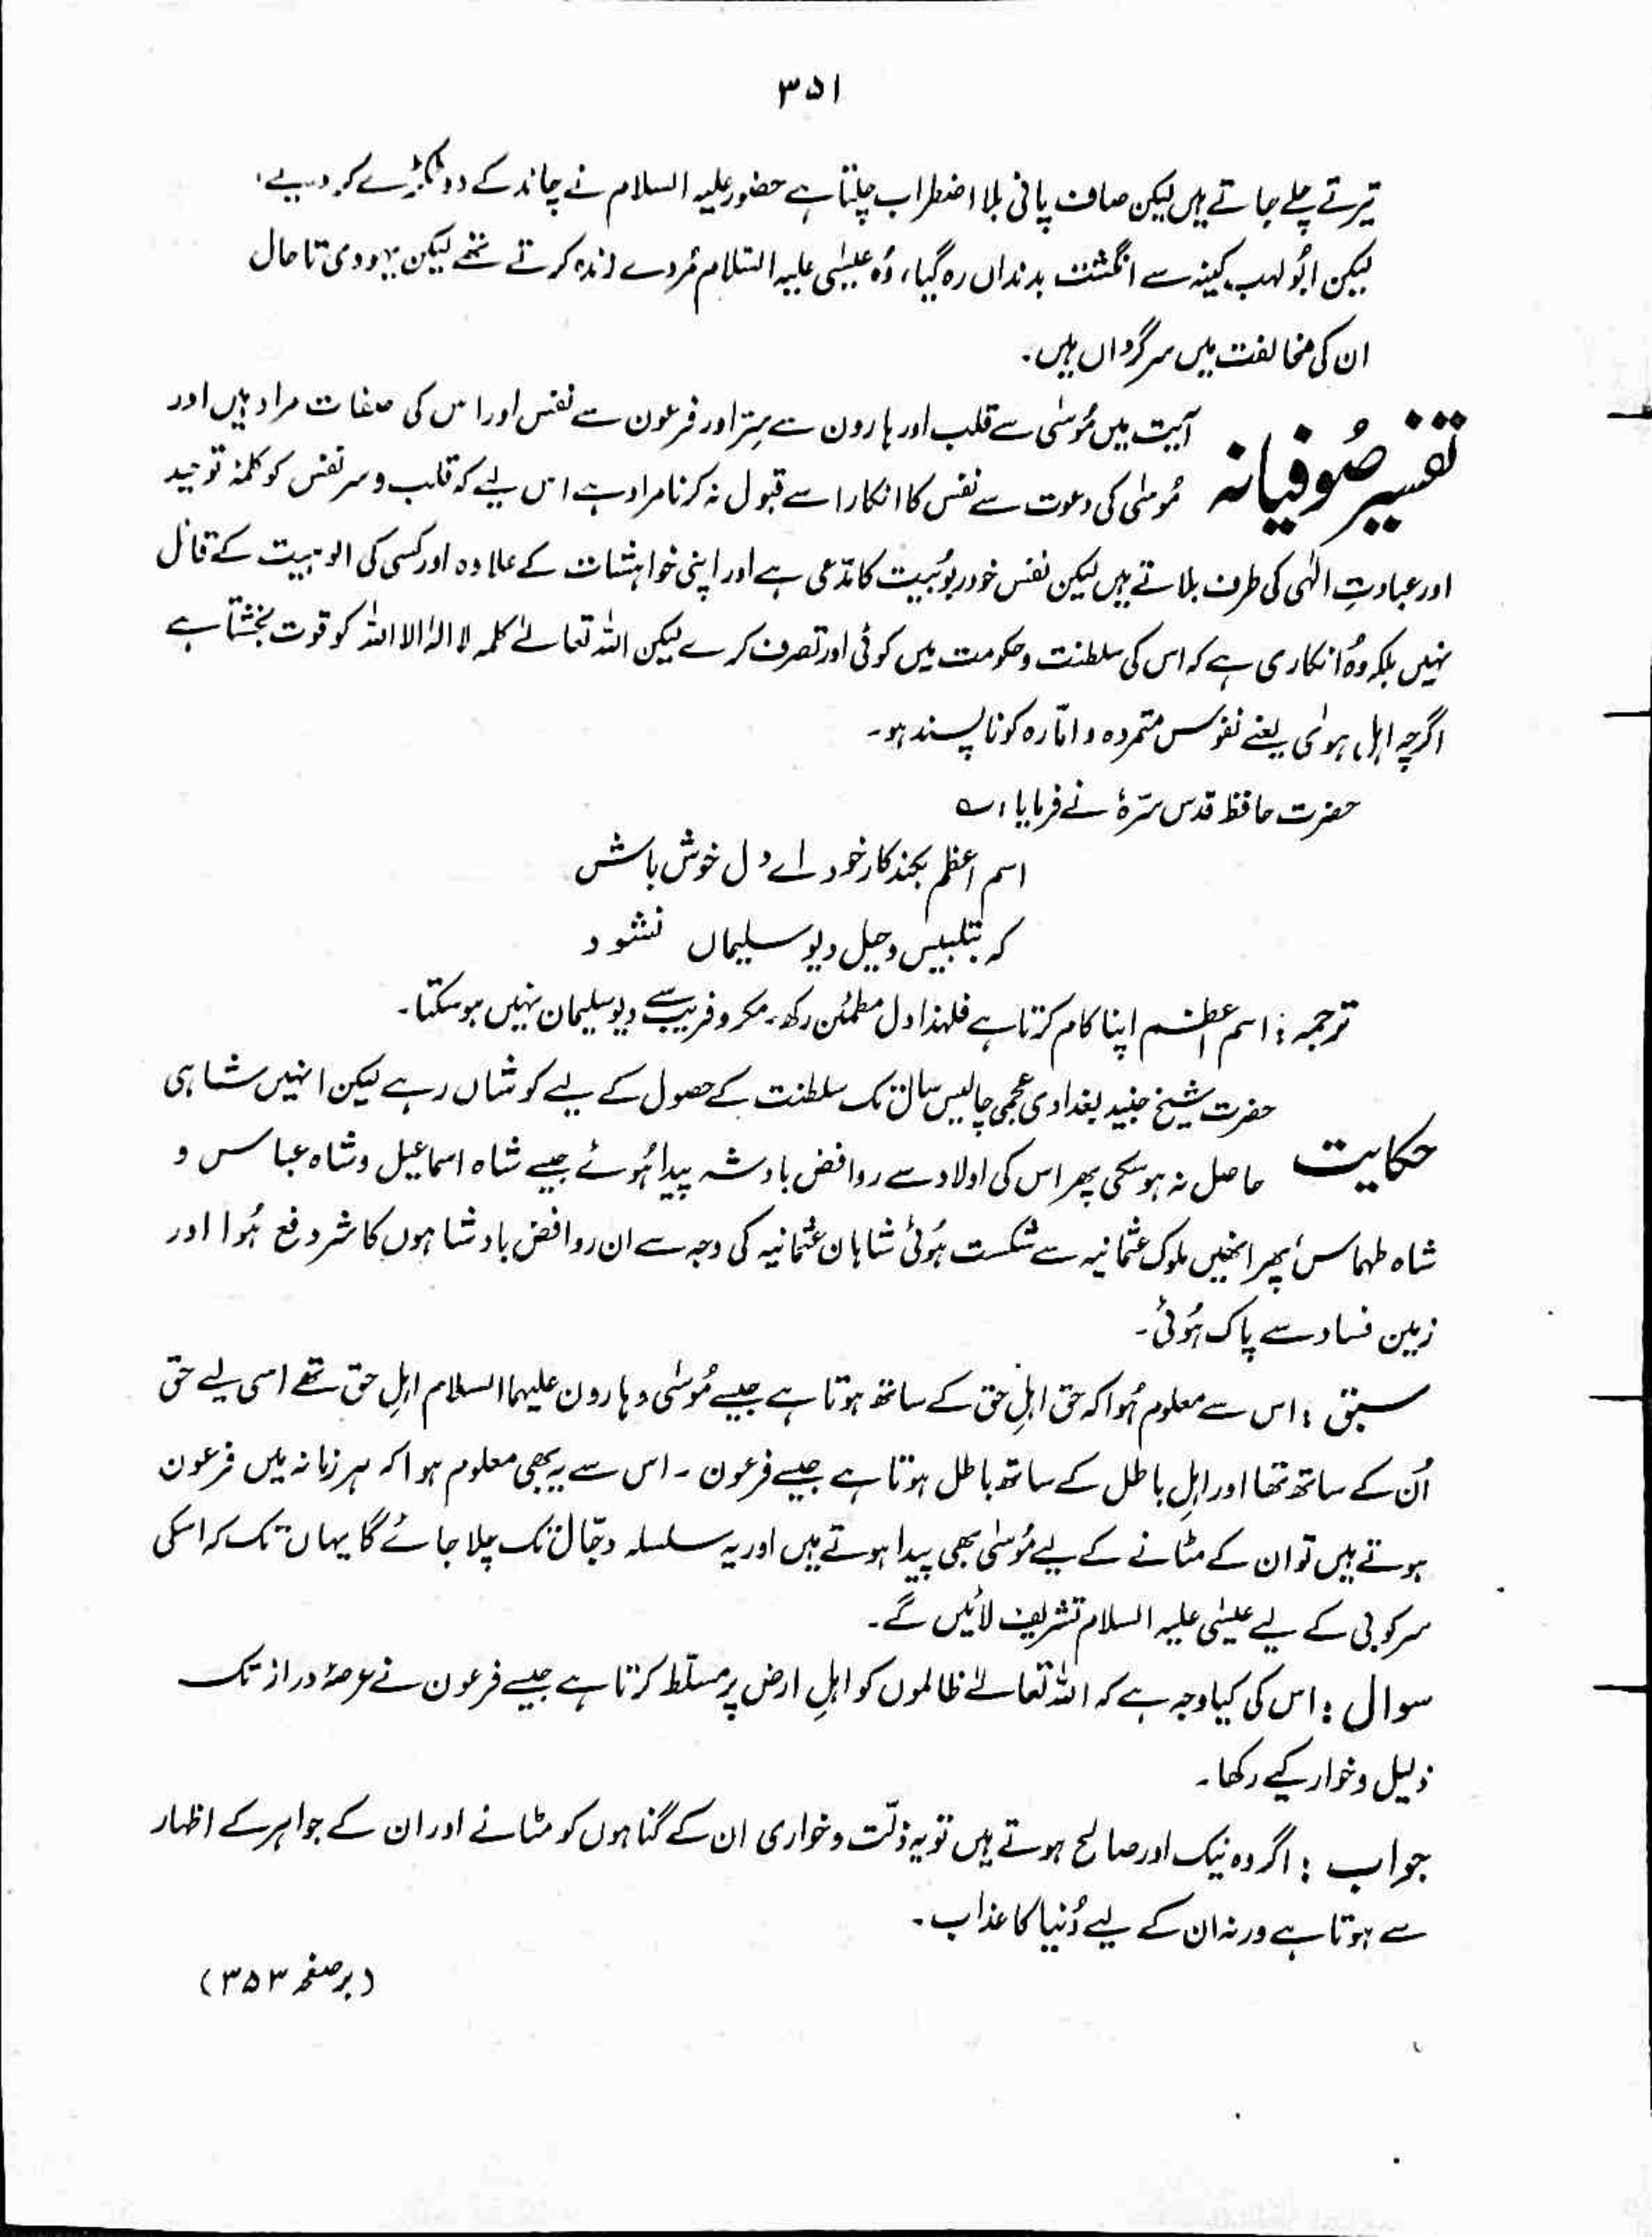 ۳۵۱
تیرتے چلے جاتے ہیں لیکن صاف پانی بلا اضطراب چلتا ہے حضور علیہ السلام نے چاند کے دو ٹکڑے کر دیے،
لیکن ابُو لہب کینہ سے انگشت بدنداں رہ گیا، وُہ عیسٰی علیہ السّلام مُردے زندہ کرتے تھے لیکن یہودی تا حال
ان کی مخالفت میں سرگرداں ہیں۔
تفسیر صُوفیانہ آیت میں مُوسٰی سے قلب اور ہارون سے سِرّ اور فرعون سے نفس اور اس کی صفات مراد ہیں اور
مُوسٰی کی دعوت سے نفس کا انکار اسے قبول نہ کرنا مراد ہے اس لیے کہ قلب و سر نفس کو کلمۂ توحید
اور عبادتِ الٰہی کی طرف بلاتے ہیں لیکن نفس خود ربوُبیت کا مدّعی ہے اور اپنی خواہشات کے علاوہ اور کسی کی الوہیت کے قائل
نہیں بلکہ وُہ انکاری ہے کہ اس کی سلطنت و حکومت میں کوئی اور تصرف کرے لیکن اللہ تعالےٰ کلمہ لا الٰہ الا اللہ کو قوت بخشتا ہے
اگرچہ اہلِ ہوٰی یعنے نفوس متمردہ و امّارہ کو ناپسند ہو۔
حضرت حافظ قدس سرّہٗ نے فرمایا، ؎
اسم اعظم بکند کار خود اے دل خوش باش
کہ بتلبیس و حیل دیو سلیماں نشود
ترجمہ: اسم اعظم اپنا کام کرتا ہے فلہذا دل مطمئن رکھ۔ مکر و فریب سے دیو سلیمان نہیں ہو سکتا۔
حکایت حضرت شیخ جنید بغدادی عجمی چالیس سال تک سلطنت کے حصول کے لیے کوشاں رہے لیکن انہیں شاہی
حاصل نہ ہو سکی پھر اس کی اولاد سے روافض بادشہ پیدا ہُوئے جیسے شاہ اسماعیل و شاہ عباس و
شاہ طہماس، پھر انھیں ملوک عثمانیہ سے شکست ہُوئی شاہان عثمانیہ کی وجہ سے ان روافض بادشاہوں کا شر دفع ہُوا اور
زمین فساد سے پاک ہُوئی۔
سبق: اس سے معلوم ہُوا کہ حق اہلِ حق کے ساتھ ہوتا ہے جیسے مُوسٰی و ہارون علیہما السلام اہلِ حق تھے اسی لیے حق
اُن کے ساتھ تھا اور اہلِ باطل کے ساتھ باطل ہوتا ہے جیسے فرعون۔ اس سے یہ بھی معلوم ہوا کہ ہر زمانہ میں فرعون
ہوتے ہیں تو ان کے مٹانے کے لیے مُوسٰی بھی پیدا ہوتے ہیں اور یہ سلسلہ دجّال تک چلا جائے گا یہاں تک کہ اسکی
سرکوبی کے لیے عیسٰی علیہ السلام تشریف لائیں گے۔
سوال: اس کی کیا وجہ ہے کہ اللہ تعالےٰ ظالموں کو اہلِ ارض پر مسلّط کرتا ہے جیسے فرعون نے عرصۂ دراز تک
ذلیل و خوار کیے رکھا۔
جواب: اگر وہ نیک اور صالح ہوتے ہیں تو یہ ذلّت و خواری ان کے گناہوں کو مٹانے اور ان کے جواہر کے اظہار
سے ہوتا ہے ورنہ ان کے لیے دُنیا کا عذاب۔
(بر صفحہ ۳۵۳)